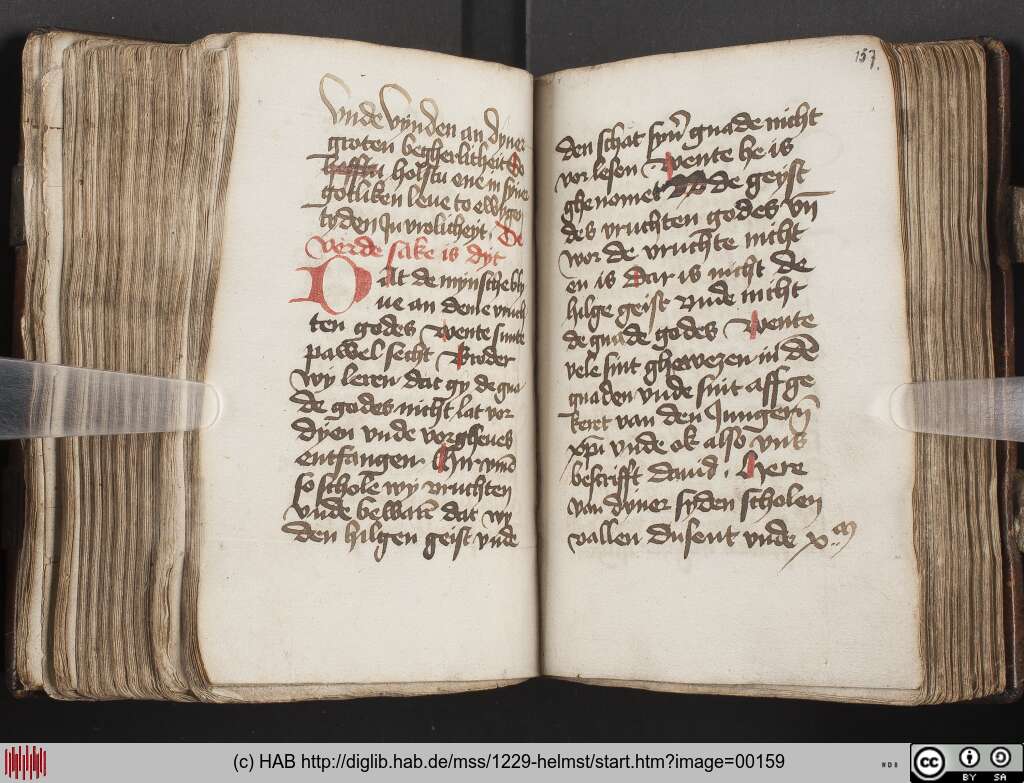 vnde vynden an dyner
groten begherlicheit So
hefftu holstu ene in syner
gotliken leue to ewygen
tyden Jn vrolicheyt. De
verde sake is dyt
DAt de mynsche bly
ue an deme vruch
ten godes wente sunte
pawel secht Broder
wy leren dat gy de gna
de godes nicht lat vor
dyen vnde vorgheues
entfangen.
so scholē wy vruchten
vnde bewarē dat wy
den hilgen geist vnde
157.
den schat syn̄ gnade nicht
vor lesen wente he is
ghenomet de geyst
des vruchten godes vn̄
wor de vruchte nicht
en is dar is nicht de
hilge geist vnde nicht
de gnade godes wente
vele sint ghewezen in dē
gnaden vnde sint aff ge
keret van den Jungern̄
xp̄i vnde ok also vns
bescrifft dauid. Here
van dyner syden scholen
vallen dusent vnde x
(c) HAB http://diglib.hab.de/mss/1229-helmst/start.htm?image=00159
WDB
cc BY SA